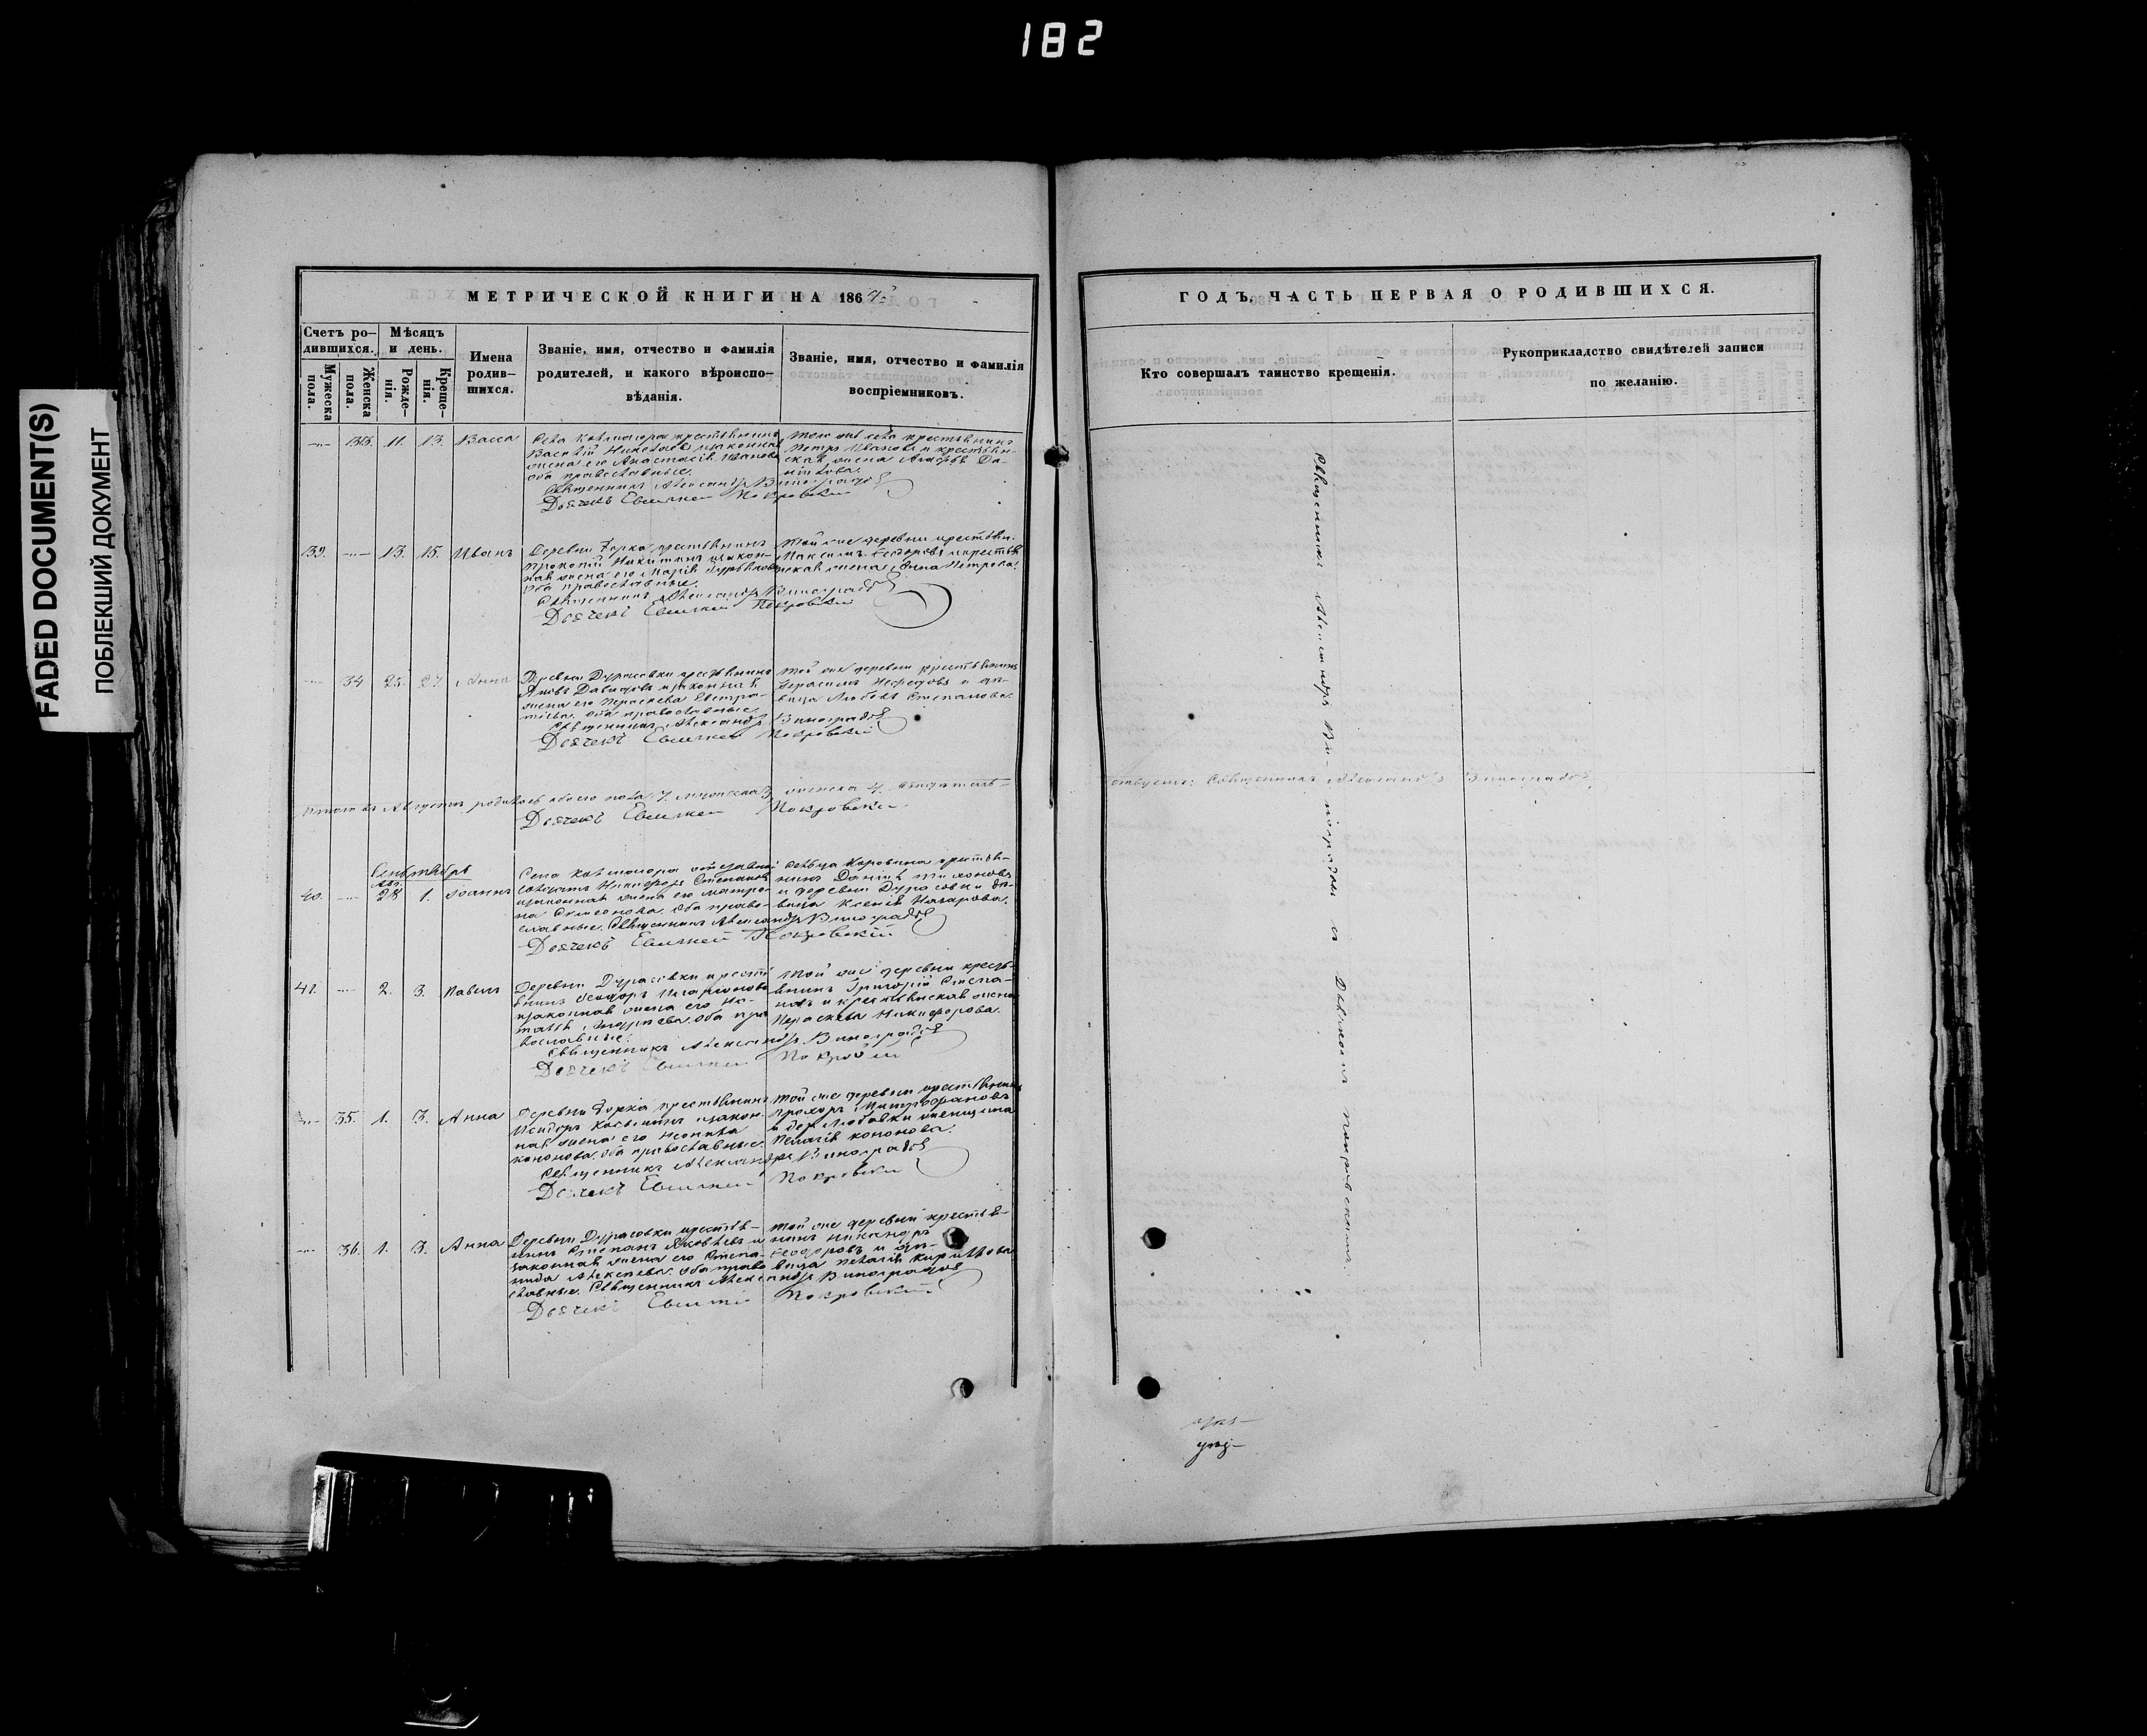 182
FADED DOCUMENT(S)
ПОБЛЕКШИЙ ДОКУМЕНТ
МЕТРИЧЕСКОЙ КНИГИ НА 186
Счетъ ро-
дившихся.
Мужеска
пола.
Женска
пола.
Мѣсяцъ
и день.
Рожде-
нія.
Креще-
нія.
Имена
родив-
шихся.
Званіе, имя, отчество и фамилія
родителей, и какого вѣроиспо-
вѣданія.
Званіе, имя, отчество и фамилія
воспріемниковъ.
33. 11. 13. Васса
Села крестьянинъ
Василій Николаевъ и законная
жена его Анастасія Иванова
оба православные.
Священникъ Александръ Виноградов
Дьячекъ Евгений Покровский
Того же села крестьянинъ
Петръ Ивановъ и крестьян-
ская жена Да-
нилова.
39. 13. 15. Иванъ
Деревни крестьянинъ
Прокопій Никитинъ и закон-
ная жена его Марія
оба православные.
Священникъ Александръ Виноградов
Дьячекъ Евгений Покровский
Той же деревни крестьян.
Максимъ Ѳедоровъ и крестья
нская жена Анна Петрова.
34 25. 27 Анна
Деревни Дурасовки крестьянинъ
Яковъ Давидовъ и законная
жена его Параскева Евстра-
тіева. Оба православные
Священникъ Александръ Виноградов
Дьячекъ Евгений Покровский
Той же деревни крестьянинъ
Герасимъ и дѣ-
вица Любовь Степанова.
Итого въ Августѣ родилось обоего пола 7. мужеска 3, женска 4. Свидѣтель-
ствуетъ: Священникъ Александръ Виноградов
Дьячекъ Евгений Покровский
Сентябрь
40. Авг. 28 1. Іоаннъ
Села отставной
солдатъ Никифоръ Степановъ
и законная жена его Матро-
на Симеонова. Оба право-
славные. Священникъ Александръ Виноградов
Дьячекъ Евгений Покровскій
Сельца крестья-
нинъ Даніилъ
и деревни Дурасовки дѣ-
вица Ксенія Назарова.
41. 2. 3. Павелъ
Деревни Дурасовки кресть
янинъ Ѳеодоръ Иларіоновъ
и законная жена его На-
талія Андреева. Оба пра
вославные.
Священникъ Александръ Виноградов
Дьячекъ Евгений Покровский
Той же деревни кресть-
янинъ Григорій Степа-
новъ и крестьянская жена
Параскева Никифорова.
35. 1. 3. Анна
Деревни крестьянинъ
Исидоръ и закон-
ная жена его Неонила
Кононова. Оба православные.
Священникъ Александръ Виноградов
Дьячекъ Евгений Покровский
Той же деревни крестьянинъ
Прохоръ Митрофановъ
и дер. Любовки женщина
Пелагія Кононова.
36. 1. 3. Анна
Деревни Дурасовки крестья-
нинъ Степанъ Яковлевъ и
законная жена его Степа-
нида Алексѣева. Оба право
славные. Священникъ Александръ Виноградов
Дьячекъ Евгений Покровский
Той же деревни крестья-
нинъ Никаноръ
Ѳеодоровъ и дѣ-
вица Пелагія Кириллова
ГОДЪ, ЧАСТЬ ПЕРВАЯ О РОДИВШИХСЯ.
Кто совершалъ таинство крещенія.
Рукоприкладство свидѣтелей записи
по желанію.
Священникъ Александръ Виноградовъ и Дьячкомъ Покровскимъ.